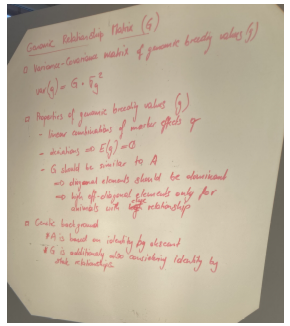 Genomic Relationship Matrix (G)
□ Variance-Covariance matrix of genomic breeding values (g)
var(g) = G · σg²
□ Properties of genomic breeding values (g)
- linear combinations of marker effects q
- deviations => E(g) = 0
- G should be similar to A
=> diagonal elements should be
=> high off-diagonal elements only for
animals with relationship
□ Genetic background
* A is based on identity by descent
* G is additionally also considering identity by
state relationships